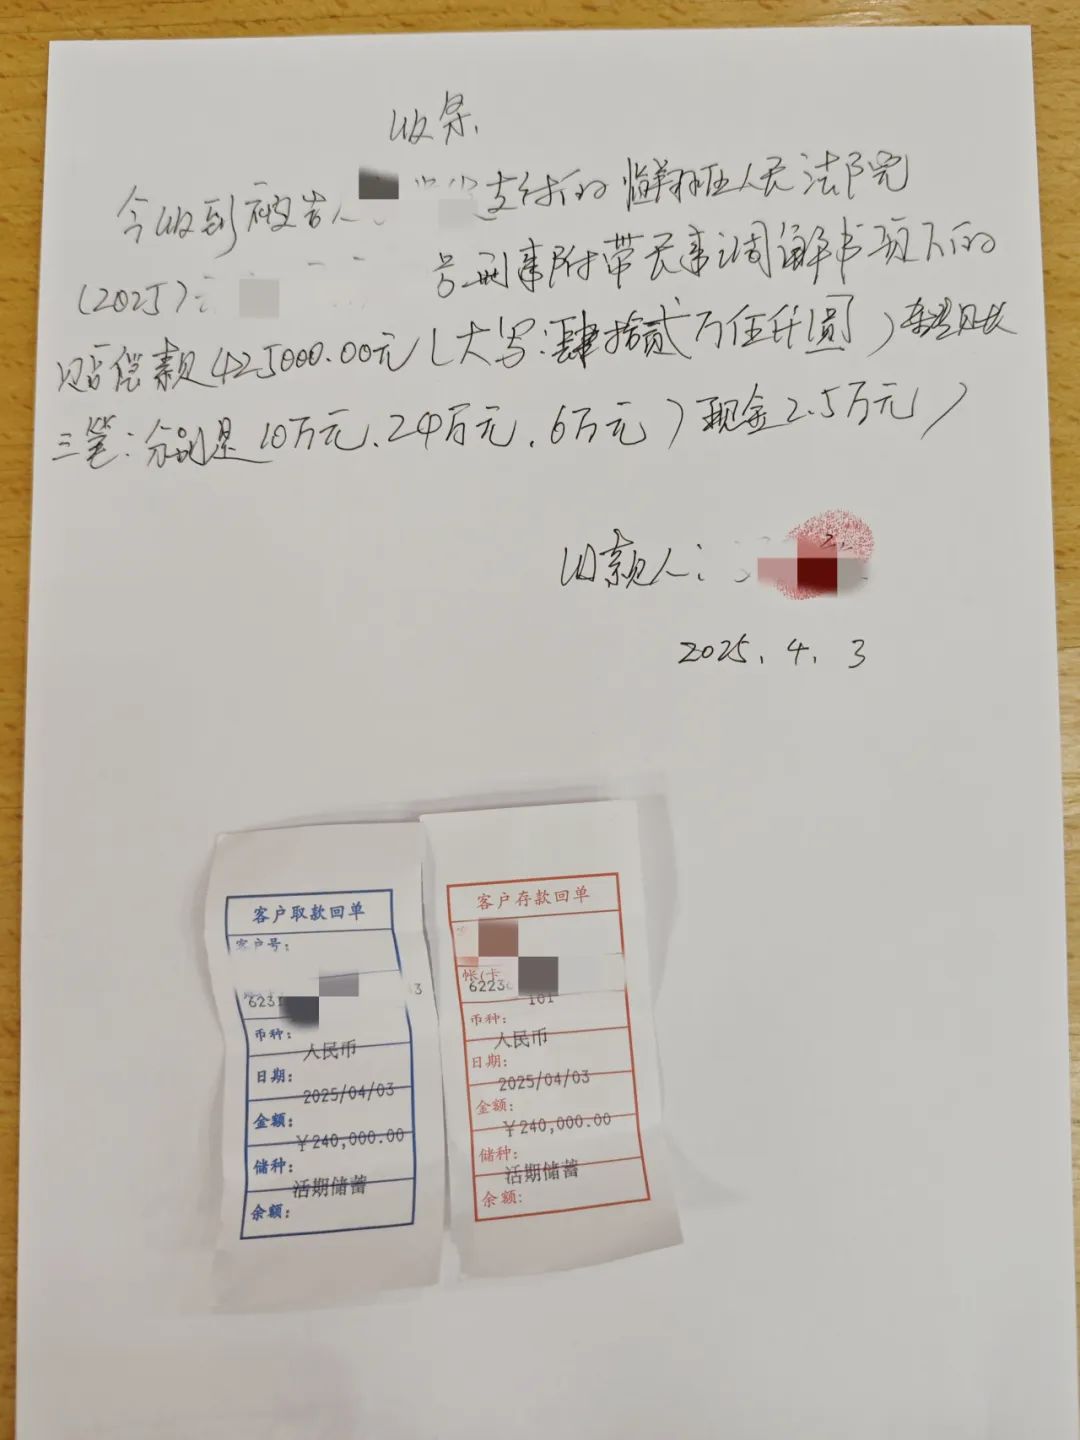 收条
今收到被告人 支付的临翔区人民法院
(2025) 号刑事附带民事调解书项下的
赔偿款425000.00元(大写:肆拾贰万伍仟圆)
三笔:分别是10万元、24万元、6万元)现金2.5万元)
收款人:
2025.4.3
客户取款回单
客户号:
6231 3
币种:
人民币
日期:
2025/04/03
金额:
￥240,000.00
储种:
活期储蓄
余额:
客户存款回单
帐(卡
6223
101
币种:
人民币
日期:
2025/04/03
金额:
￥240,000.00
储种:
活期储蓄
余额: